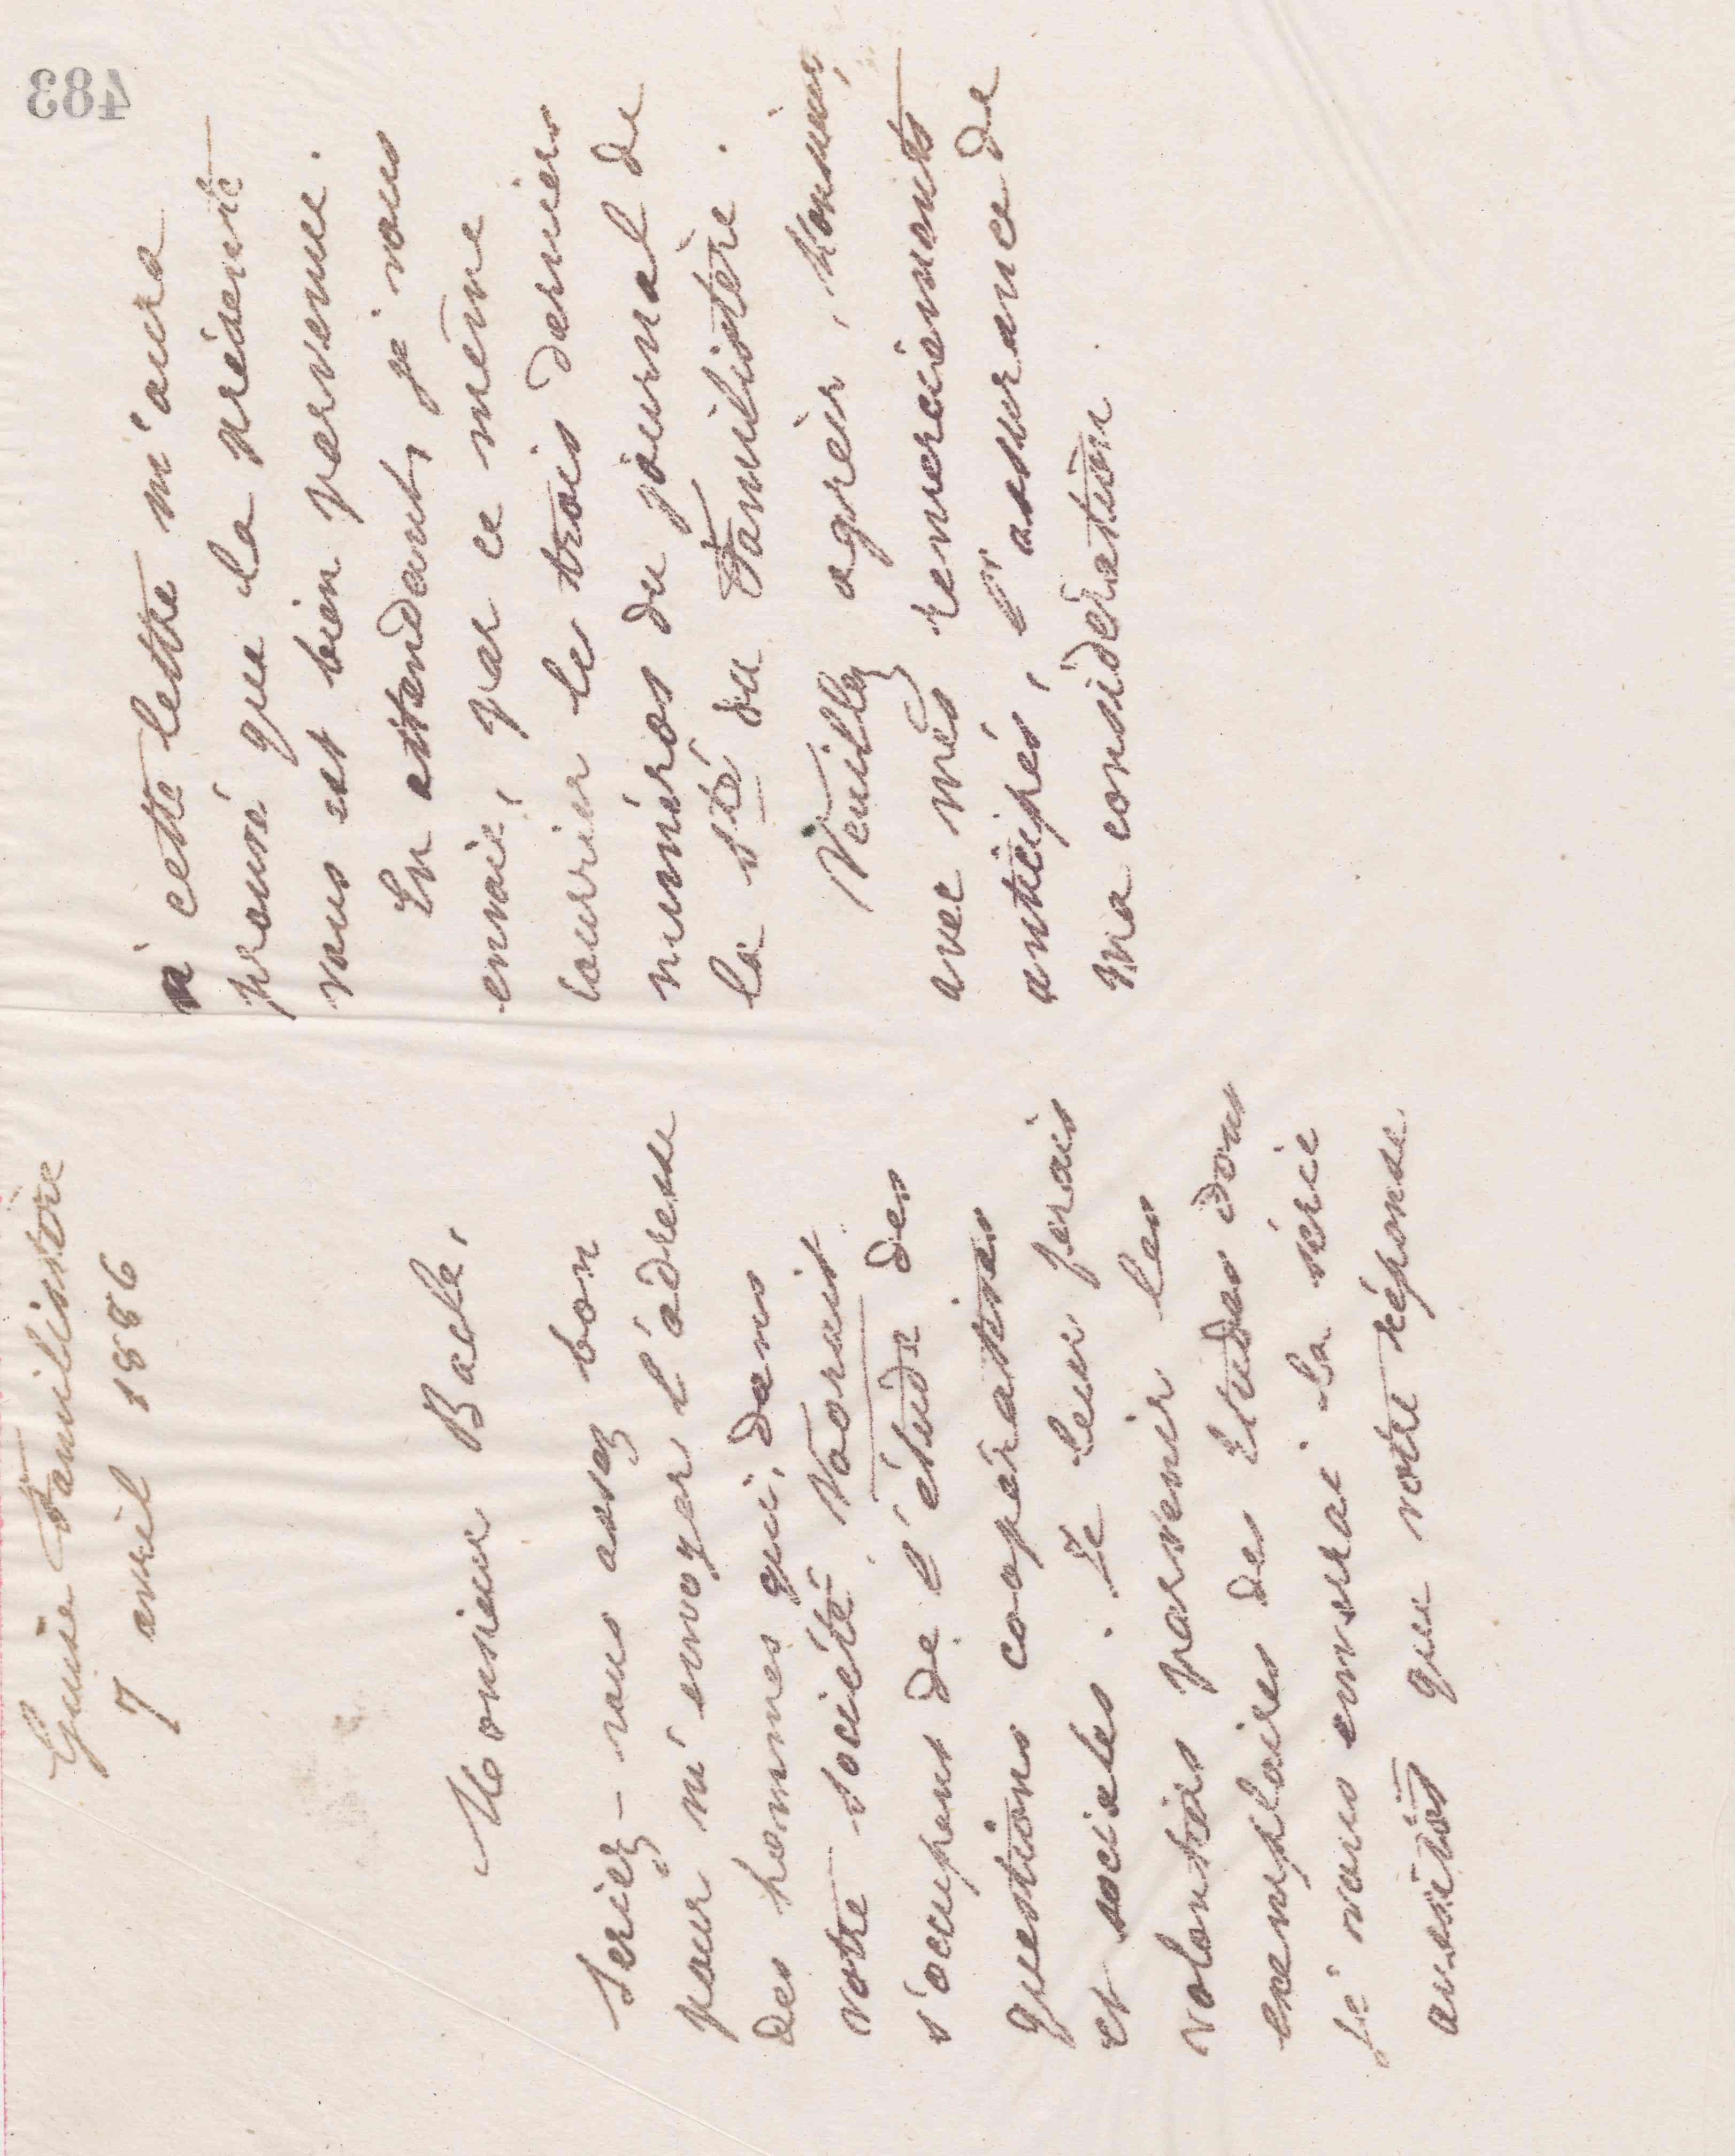 483
Guise Familistère
7 avril 1886
Monsieur Bacle,
Seriez-vous assez bon
pour m'envoyer l'adresse
des hommes qui, dans
votre société Vooruit
s'occupent de l'étude des
questions coopératives
et sociales. Je leur ferais
volontiers parvenir les
exemplaires des Etudes dont
je vous enverrai la série
aussitôt que votre réponse
à cette lettre m'aura
prouvé que la présente
vous est bien parvenue.
En attendant, je vous
envoie, par ce même
courrier les trois derniers
numéros du journal de
la sté du Familistère.
Veuillez agréer, Monsieur,
avec mes remerciements
anticipés, l'assurance de
ma considération.